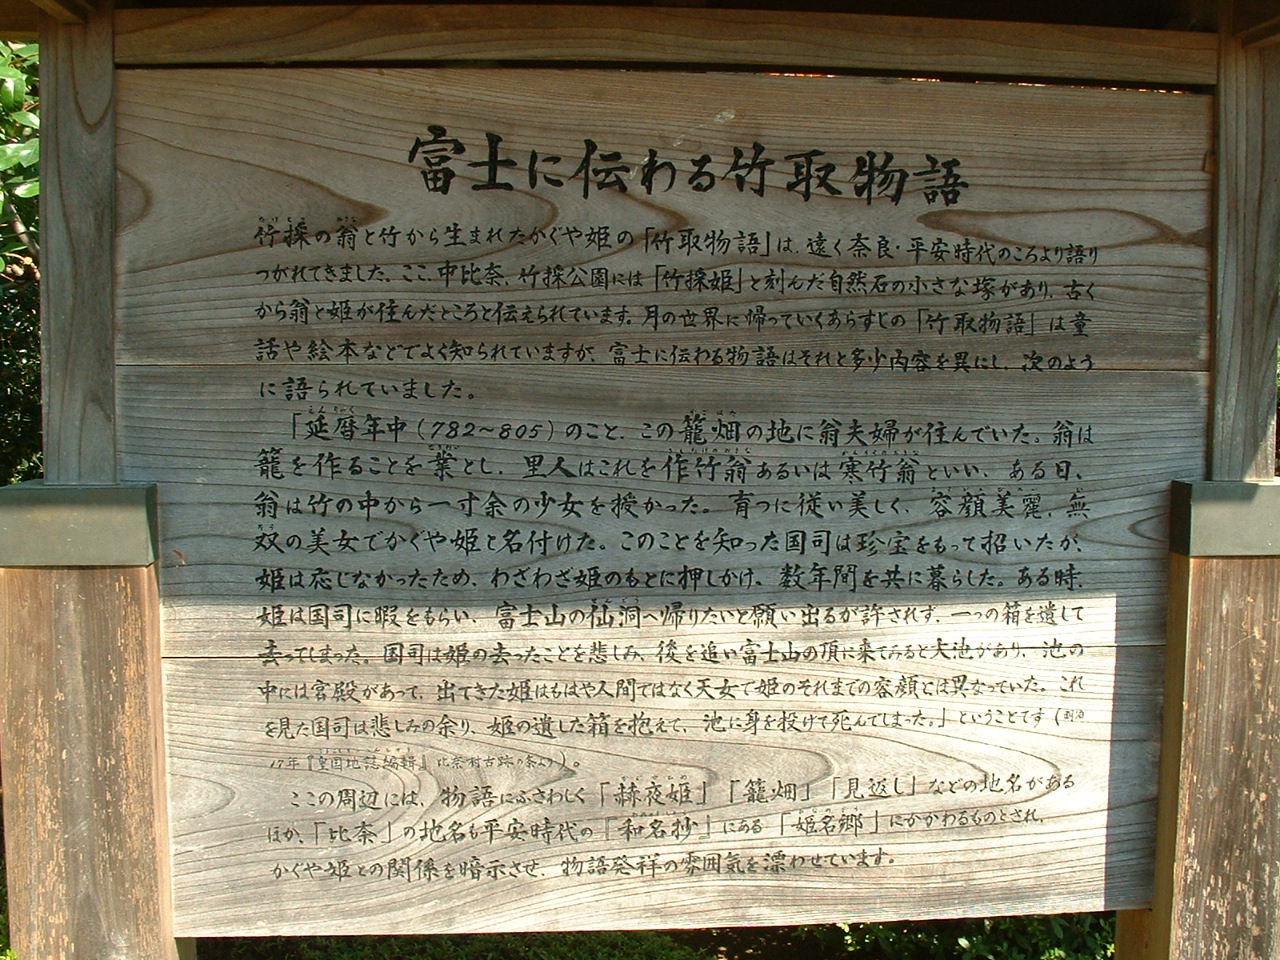 富士に伝わる竹取物語
竹採の翁と竹から生まれたかぐや姫の「竹取物語」は、遠く奈良・平安時代のころより語り
つがれてきました。ここ、中比奈、竹採公園には「竹採姫」と刻んだ自然石の小さな塚があり、古く
から翁と姫が住んだところと伝えられています。月の世界に帰っていくあらすじの「竹取物語」は童
話や絵本などでよく知られていますが、富士に伝わる物語はそれと多少内容を異にし、次のよう
に語られていました。
「延暦年中(782〜805)のこと、この籠畑の地に翁夫婦が住んでいた。翁は
籠を作ることを業とし、里人はこれを作竹翁あるいは寒竹翁といい、ある日、
翁は竹の中から一寸余の少女を授かった。育つに従い美しく、容顔美麗、無
双の美女でかぐや姫と名付けた。このことを知った国司は珍宝をもって招いたが、
姫は応じなかったため、わざわざ姫のもとに押しかけ、数年間を共に暮らした。ある時、
姫は国司に暇をもらい、富士山の仙洞へ帰りたいと願い出るが許されず、一つの箱を遺して
去ってしまった。国司は姫の去ったことを悲しみ、後を追い富士山の頂に来てみると大池があり、池の
中には宮殿があって、出てきた姫はもはや人間ではなく天女で姫のそれまでの容顔とは異なっていた。これ
を見た国司は悲しみの余り、姫の遺した箱を抱えて、池に身を投げて死んでしまった。」ということです(明治
17年『皇国地誌編輯』比奈村古跡の条より)。
ここの周辺には、物語にふさわしく「赫夜姫」「籠畑」「見返し」などの地名がある
ほか、「比奈」の地名も平安時代の「和名抄」にある「姫名郷」にかかわるものとされ、
かぐや姫との関係を暗示させ、物語発祥の雰囲気を漂わせています。